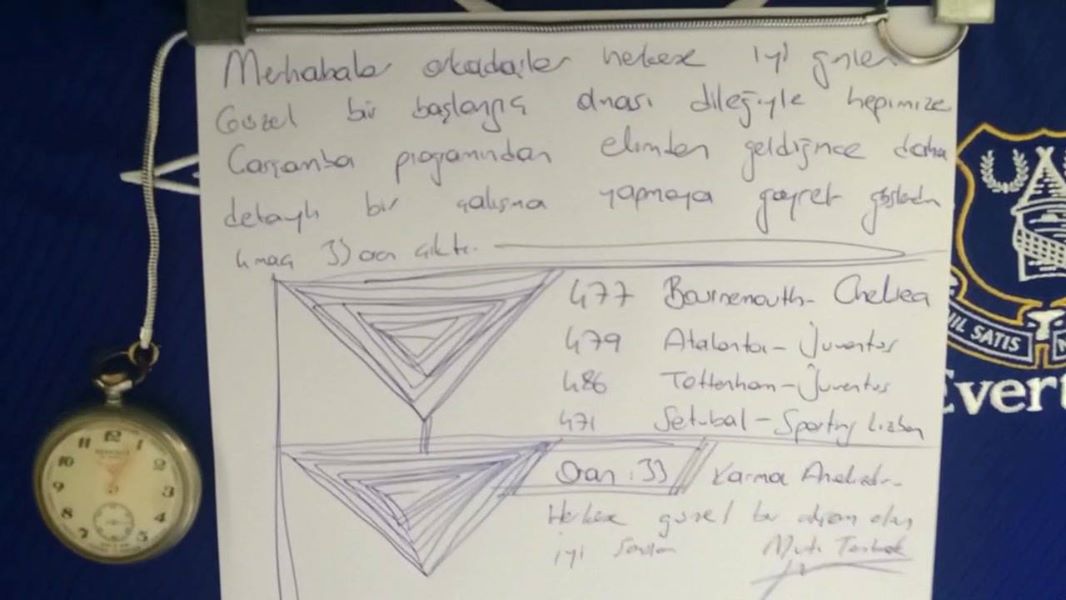 Merhabalar arkadaşlar herkese iyi günler
Güzel bir başlangıç olması dileğiyle hepimize
Çarşamba programından elimden geldiğince daha
detaylı bir çalışma yapmaya gayret gösterdim
4 maç 33 oran çıktı.
477 Bournemouth - Chelsea
479 Atalanta - Juventus
486 Tottenham - Juventus
471 Setubal - Sporting Lizbon
Oran: 33 // Karma Analizdir.
Herkese güzel bir akşam olsun
iyi şanslar
NIL SATIS
Evert
12
10
2
9
3
8
4
7
5